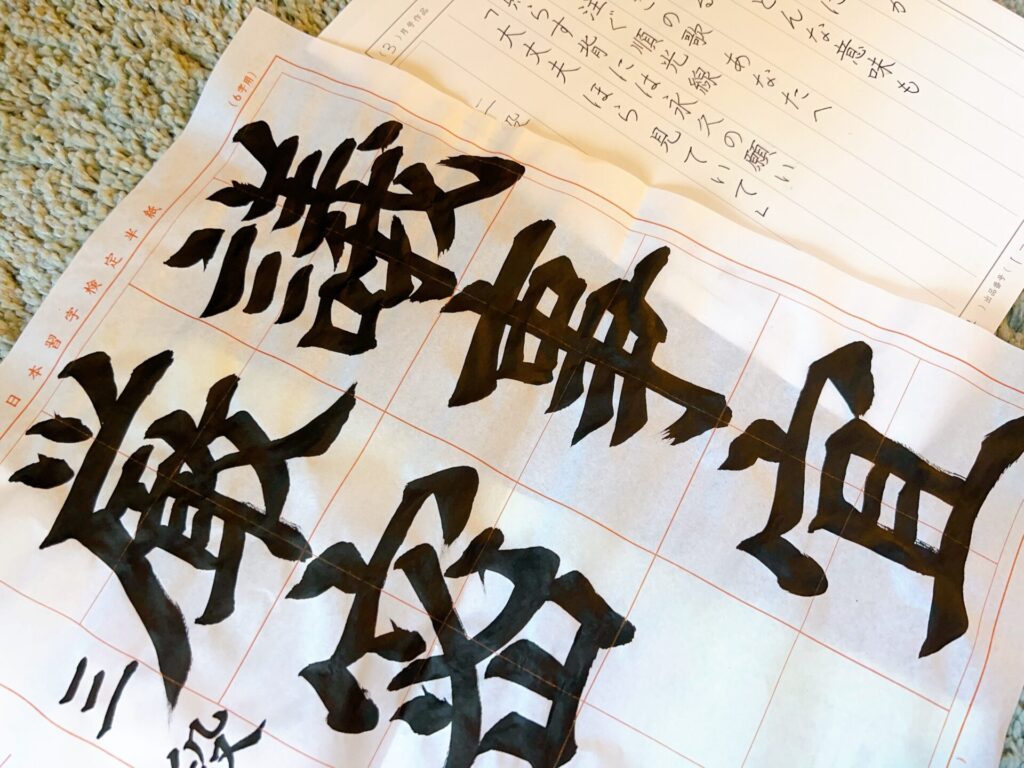 どんな意味も
この歌 あなたへ
注ぐ順光線
らす背には永久の願い
「大丈夫 ほら 見ていて」
(3)月号作品
出品番号(
(6字用)
日本習字検定半紙
議事宜
厳審
三